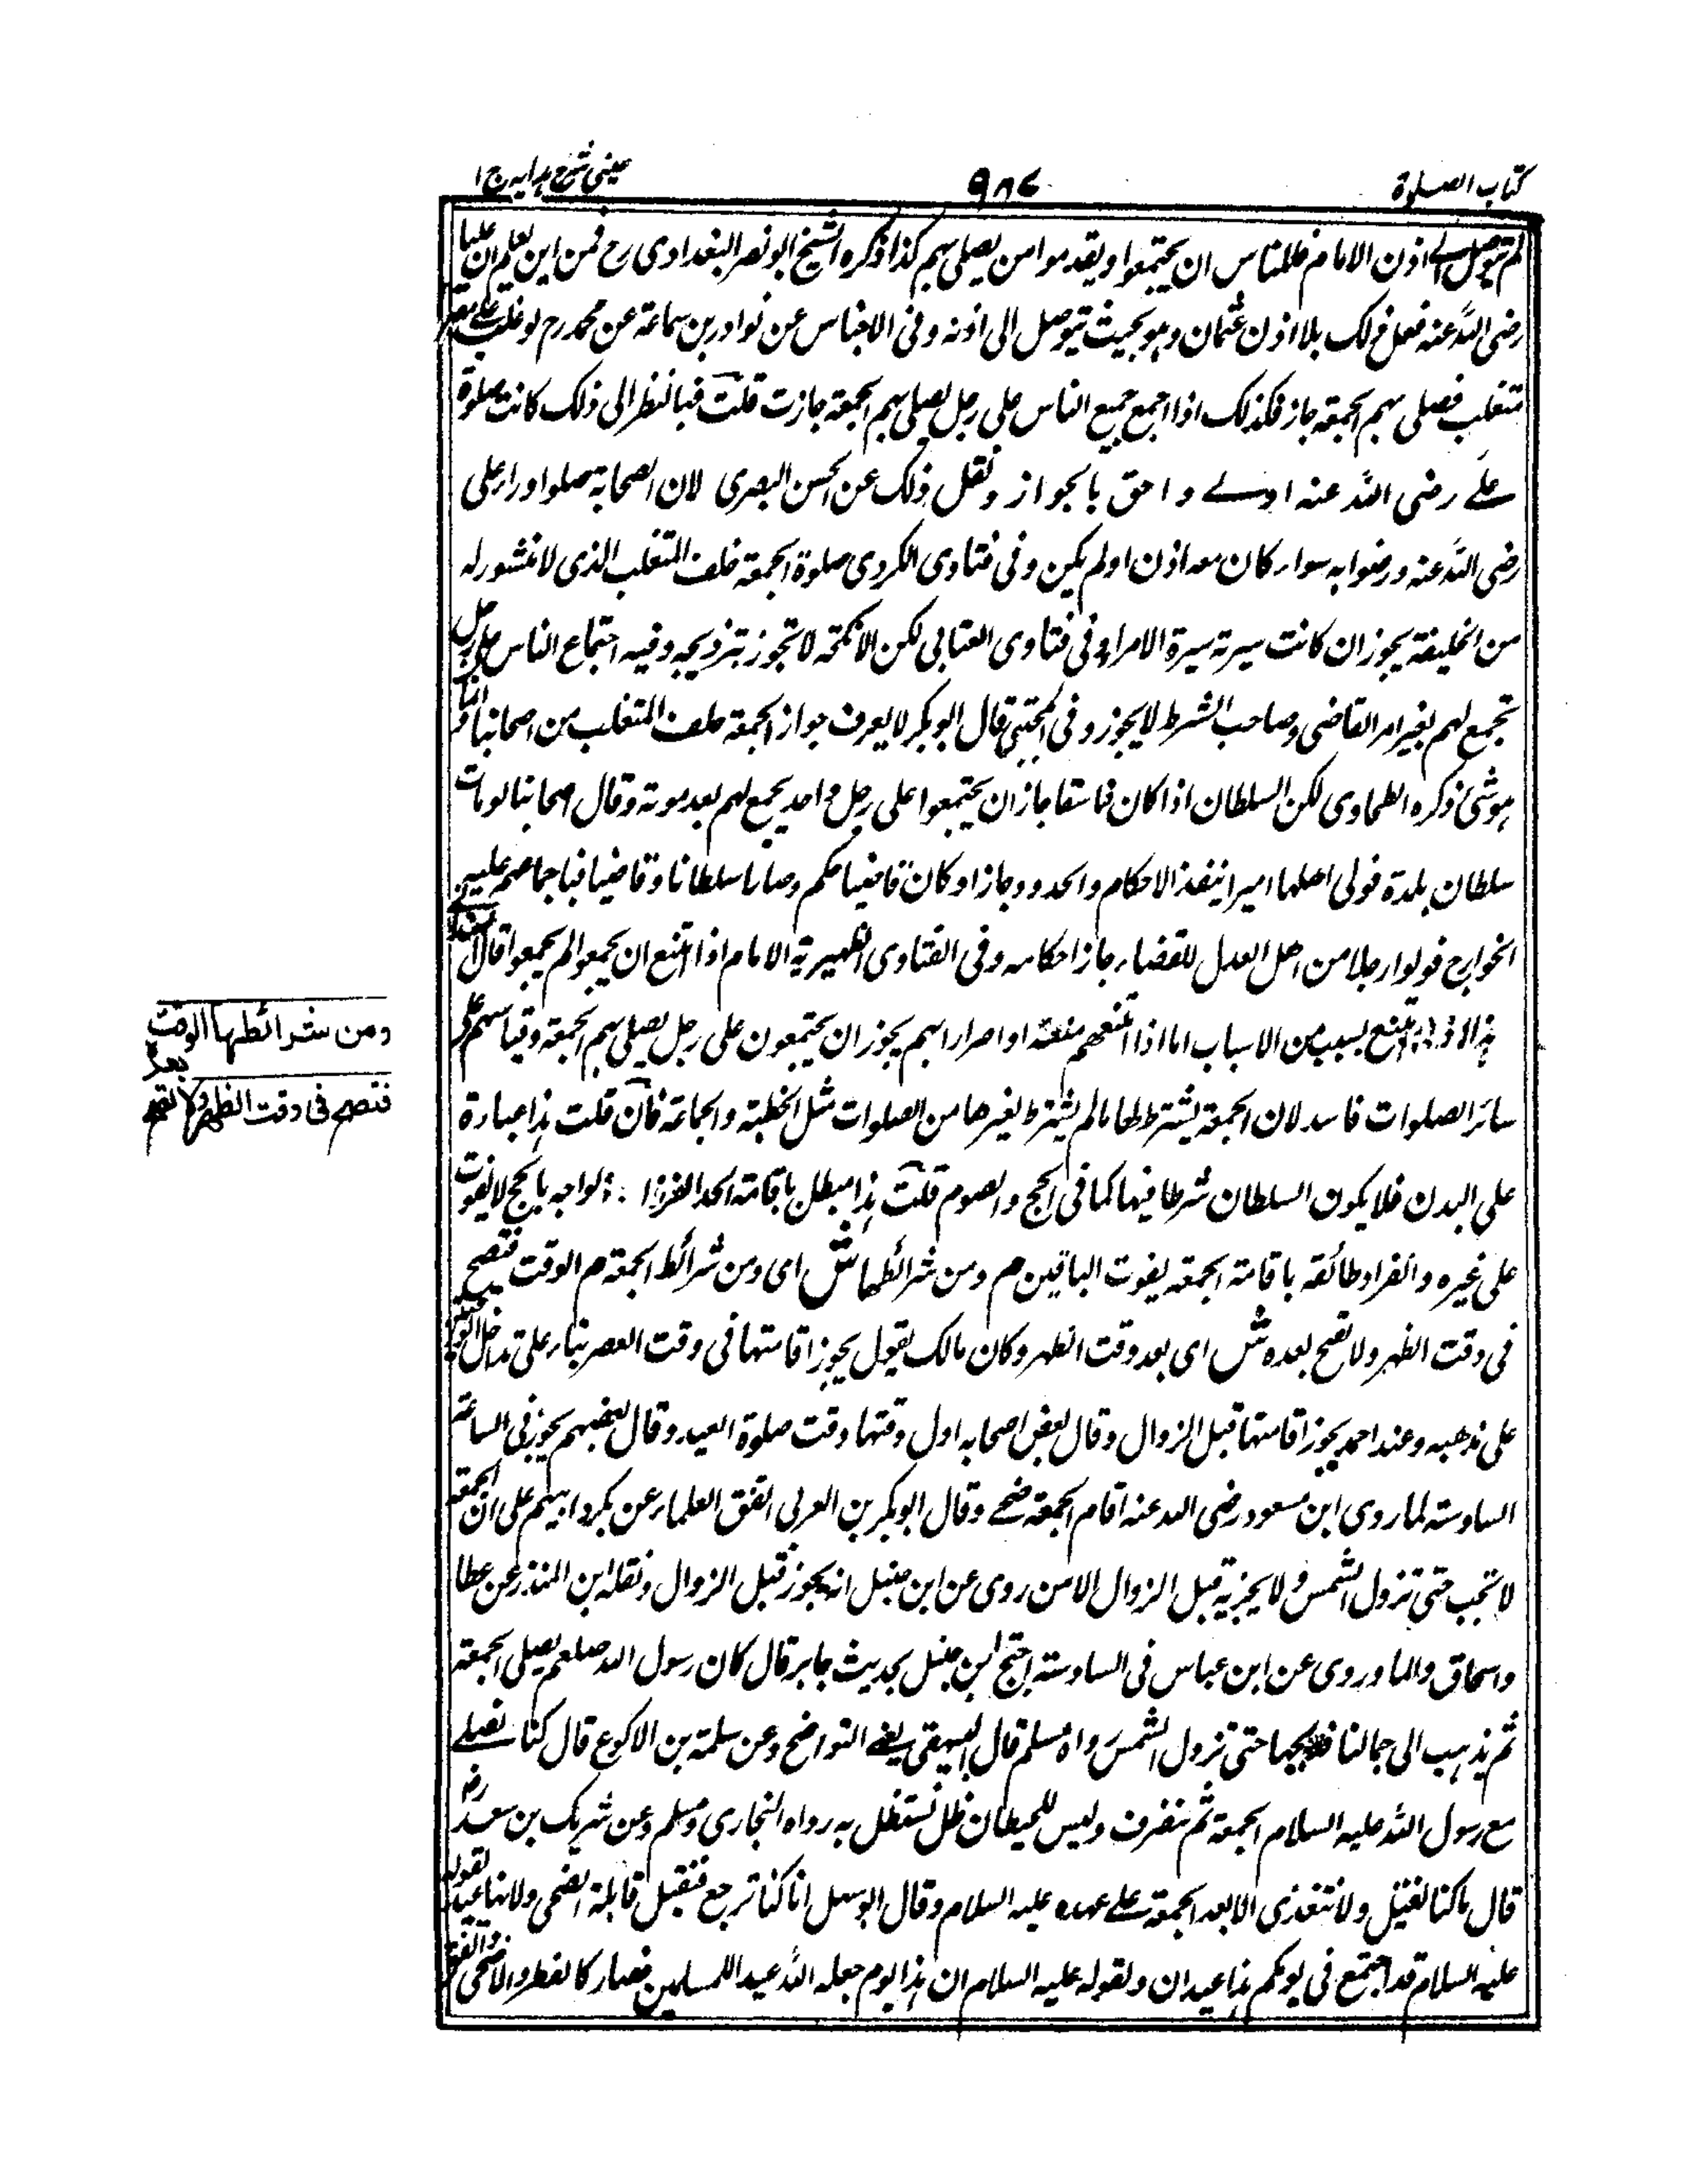 كتاب الصلوة
٩٨٧
عينى شرح هدايه ج ١
لم يتوصل الى اذن الامام فللناس ان يجتمعوا ويقدموا من يصلى بهم كذا ذكره الشيخ ابو نصر البغدادى رح فمن اين يعلم ان عليا
رضى الله عنه فعل ذلك بلا اذن عثمان وهو بحيث يتوصل الى اذنه وفى الاجناس عن نوادر بن سماعة عن محمد رح لو غلب على مصر
متغلب فصلى بهم الجمعة جاز فكذلك اذا اجمع جميع الناس على رجل يصلى بهم الجمعة جازت قلت فبالنظر الى ذلك كانت صلوة
على رضى الله عنه اولى واحق بالجواز ونقل ذلك عن الحسن البصرى لان الصحابة صلوا وراء على
رضى الله عنه ورضوا به سواء كان معه اذن اولم يكن وفى فتاوى الكردى صلوة الجمعة خلف المتغلب الذى لا منشور له
من الخليفة يجوز ان كانت سيرته سيرة الامراء وفى فتاوى العتابى لكن الانكحة لا تجوز بتزويجه وفيه اجتماع الناس على رجل
تجمع لهم بغير امر القاضى وصاحب الشرط لا يجوز وفى المجتبى قال ابو بكر لا يعرف جواز الجمعة خلف المتغلب من اصحابنا انما
هو شئ ذكره الطحاوى لكن السلطان اذا كان فاسقا جاز ان يجتمعوا على رجل واحد يجمع لهم بعد موته وقال اصحابنا لو مات
سلطان بلدة فولى اهلها اميرا ينفذ الاحكام والحدود جاز او كان قاضيا حكم وصارا سلطانا وقاضيا فباجماعهم عليه
الخوارج فولوا رجلا من اهل العدل للقضاء جاز احكامه وفى الفتاوى الظهيرية الامام اذا امتنع ان يجمعوا لم يجمعوا قال
امتنع بسبب من الاسباب اما اذا امنعهم متعنتا او اضرارا بهم يجوز ان يجتمعون على رجل يصلى بهم الجمعة وقياسهم على
سائر الصلوات فاسد لان الجمعة يشترط لها مالم يشترط لغيرها من الصلوات مثل الخطبة والجماعة فان قلت هذا عبارة
على البدن فلا يكون السلطان شرطا فيها كما فى الحج والصوم قلت هذا مبطل باقامة الحد الواحد بالحج لا يفوت
على غيره وانفراد طائفة باقامة الجمعة يفوت الباقين م ومن شرائطها ش اى ومن شرائط الجمعة م الوقت فتصح
فى وقت الظهر ولا تصح بعده ش اى بعد وقت الظهر وكان مالك يقول يجوز اقامتها فى وقت العصر بناء على تداخل الوقتين
على مذهبه وعند احمد يجوز اقامتها قبل الزوال وقال بعض اصحابه اول وقتها وقت صلوة العيد وقال بعضهم يجوز فى الساعة
السادسة لما روى ابن مسعود رضى الله عنه اقام الجمعة ضحى وقال ابو بكر بن العربى اتفق العلماء عن بكرة ابيهم على ان الجمعة
لا تجب حتى تزول الشمس ولا يجزيه قبل الزوال الا من روى عن ابن حنبل انه يجوز قبل الزوال ونقله ابن المنذر عن عطا
واسحاق والماوردى عن ابن عباس فى السادسة احتج ابن حنبل بحديث جابر قال كان رسول الله صلعم يصلى الجمعة
ثم يذهب الى جمالنا فنريحها حتى تزول الشمس رواه مسلم قال البيهقى يعنى النواضح وعن سلمة بن الاكوع قال كنا نصلى
مع رسول الله عليه السلام الجمعة ثم ننصرف وليس للحيطان ظل نستظل به رواه البخارى ومسلم وعن شريك بن سعد رضه
قال ماكنا نقيل ولا نتغذى الا بعد الجمعة على عهده عليه السلام وقال ابو سهل انا كنا نرجع فنقيل قائلة الضحى ولانها عيد لقوله
عليه السلام قد اجتمع فى يومكم هذا عيدان ولقوله عليه السلام ان هذا يوم جعله الله عيدا للمسلمين فصار كالفطر والاضحى واتفق
ومن شرائطها الوقت
فتصح فى وقت الظهر ولا تصح بعده